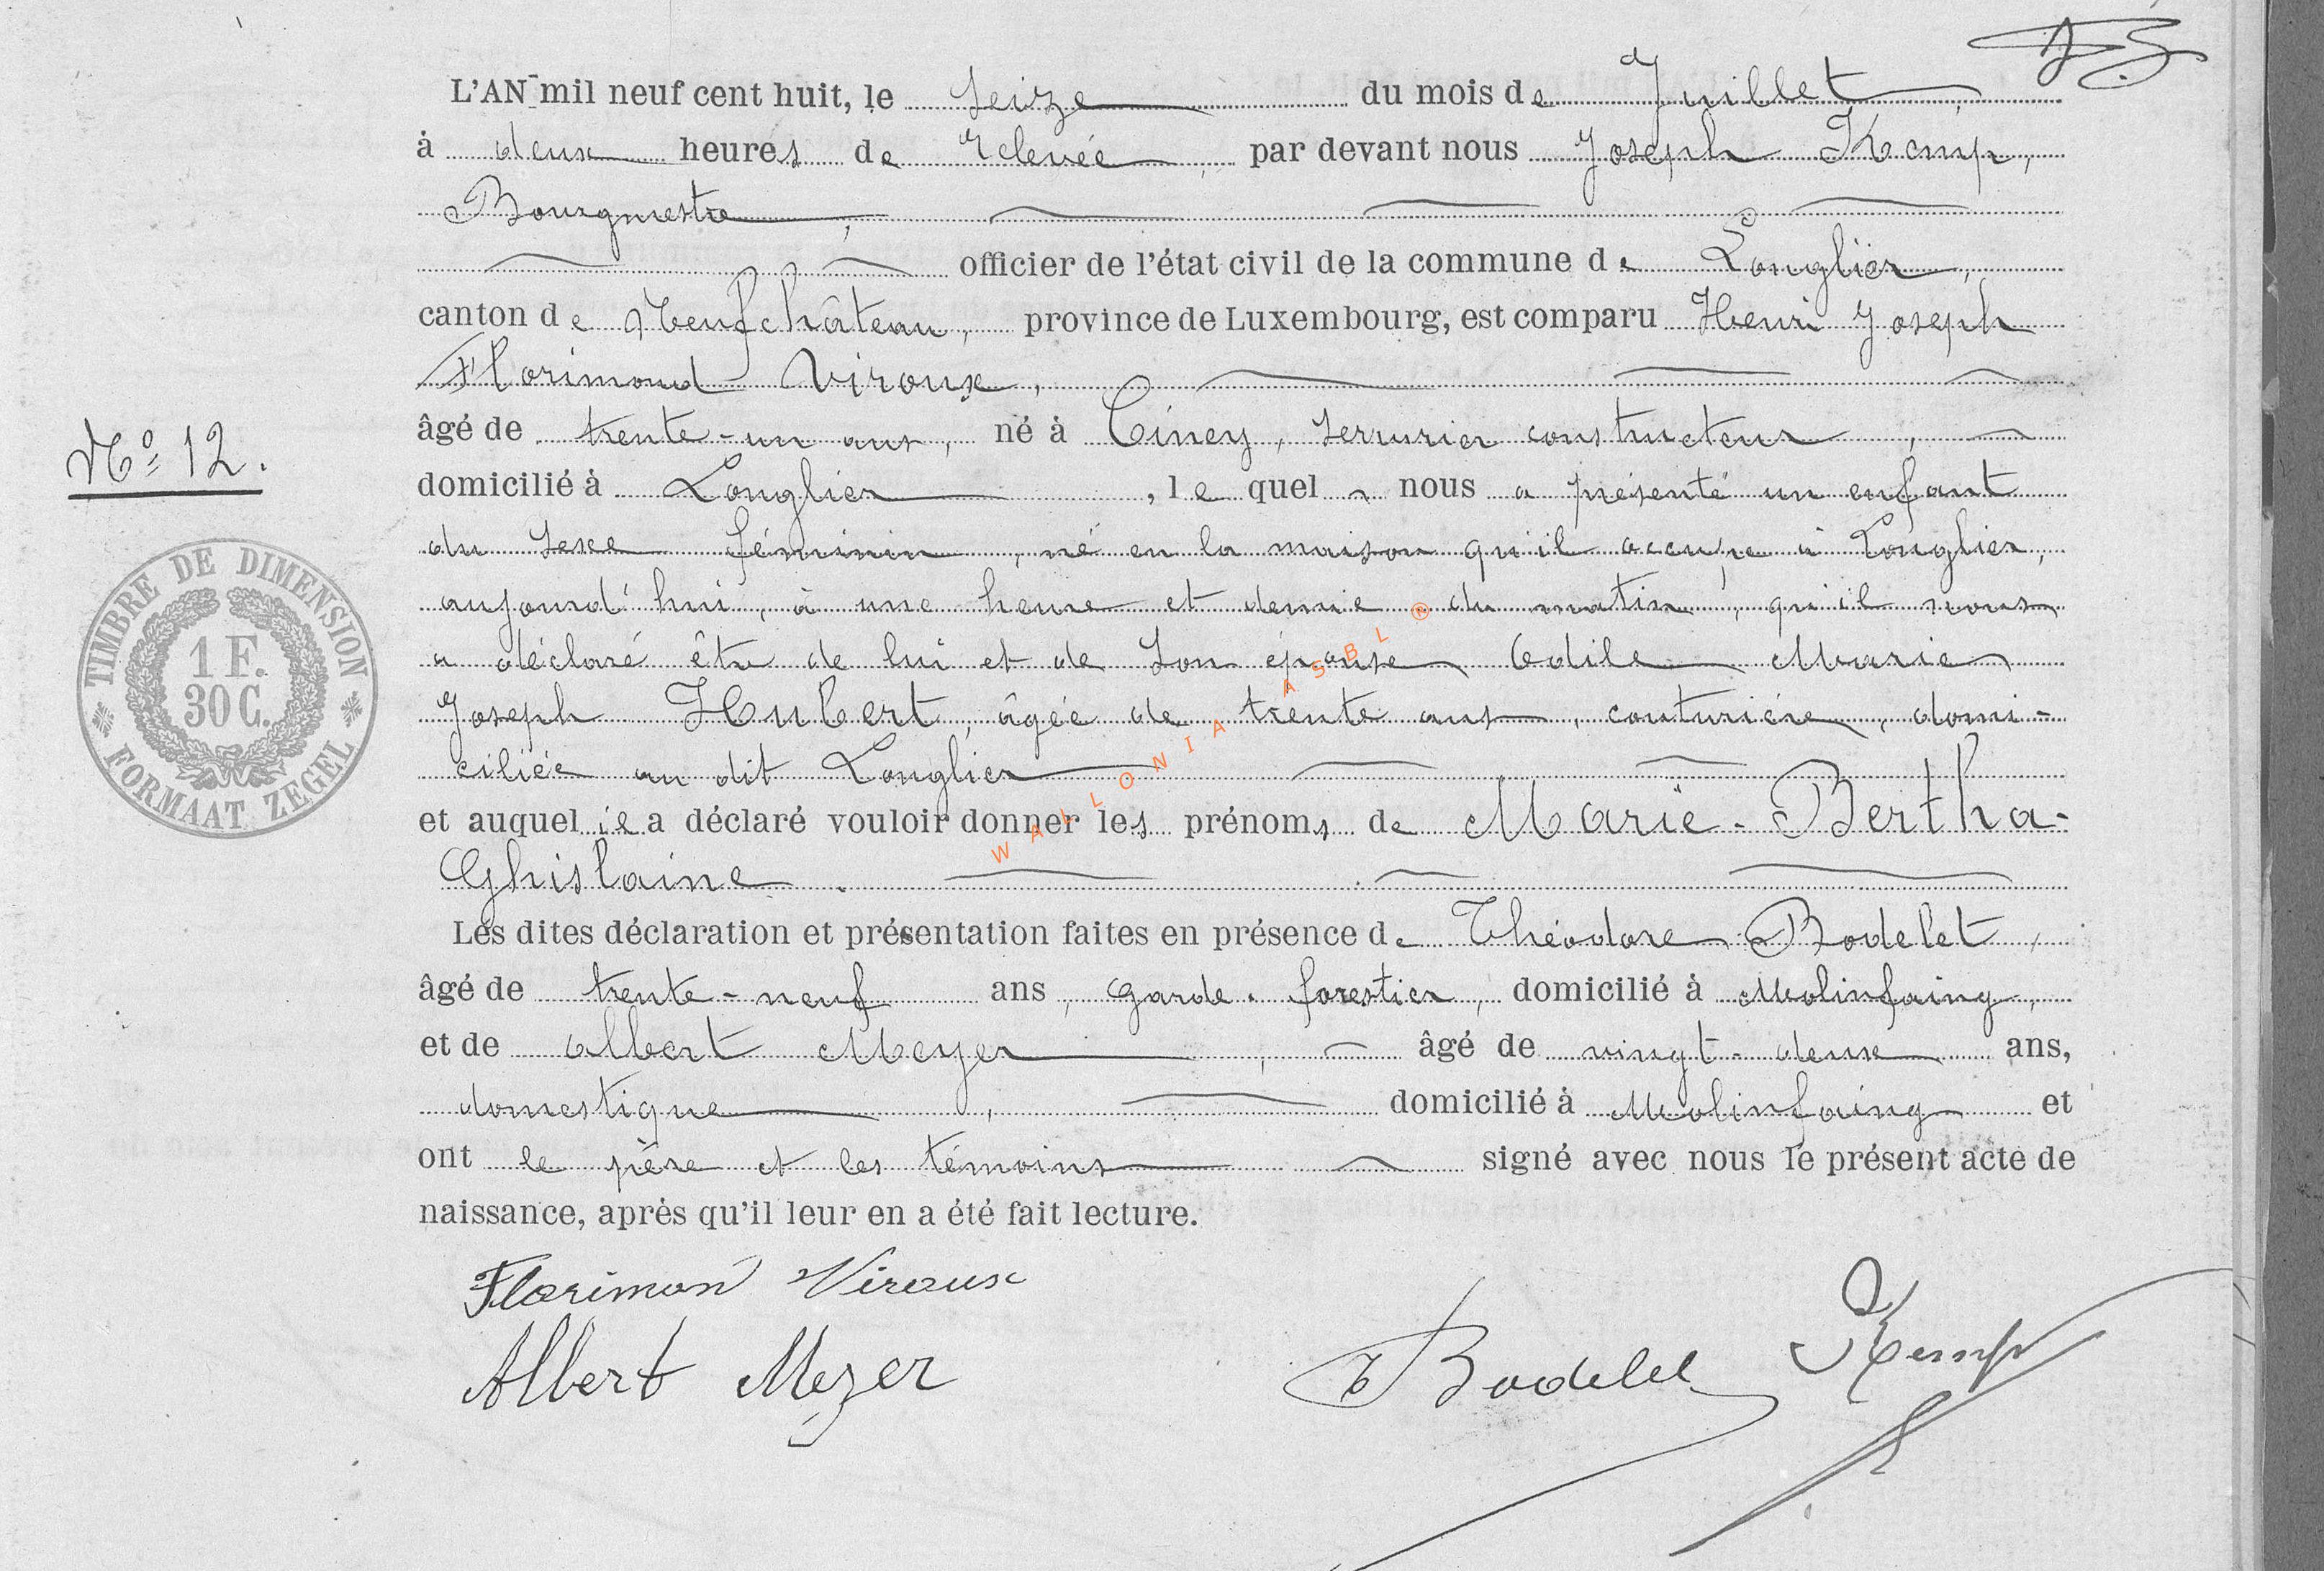 L'AN mil neuf cent huit, le seize du mois de Juillet,
à deux heures de relevée, par devant nous Joseph Kemp,
Bourgmestre,
officier de l'état civil de la commune de Longlier,
canton de Neufchâteau, province de Luxembourg, est comparu Henri Joseph
Florimond Viroux,
âgé de trente-un ans, né à Ciney, serrurier constructeur,
N° 12.
domicilié à Longlier, lequel nous a présenté un enfant
du sexe féminin, né en la maison qu'il occupe à Longlier,
aujourd'hui, à une heure et demie du matin, qu'il nous
a déclaré être de lui et de son épouse Odile Marie
Joseph Hubert, âgée de trente ans, couturière, domi-
ciliée au dit Longlier
et auquel il a déclaré vouloir donner les prénoms de Marie-Bertha-
Ghislaine.
Les dites déclaration et présentation faites en présence de Théodore Bodelet,
âgé de trente-neuf ans, garde-forestier, domicilié à Molinfaing,
et de Albert Meyer, âgé de vingt-deux ans,
domestique, domicilié à Molinfaing et
ont le père et les témoins signé avec nous le présent acte de
naissance, après qu'il leur en a été fait lecture.
Florimon Viroux
Albert Meyer
T Bodelet
Kemp
TIMBRE DE DIMENSION
1 F.
30 C.
FORMAAT ZEGEL
WALLONIA ASBL ®